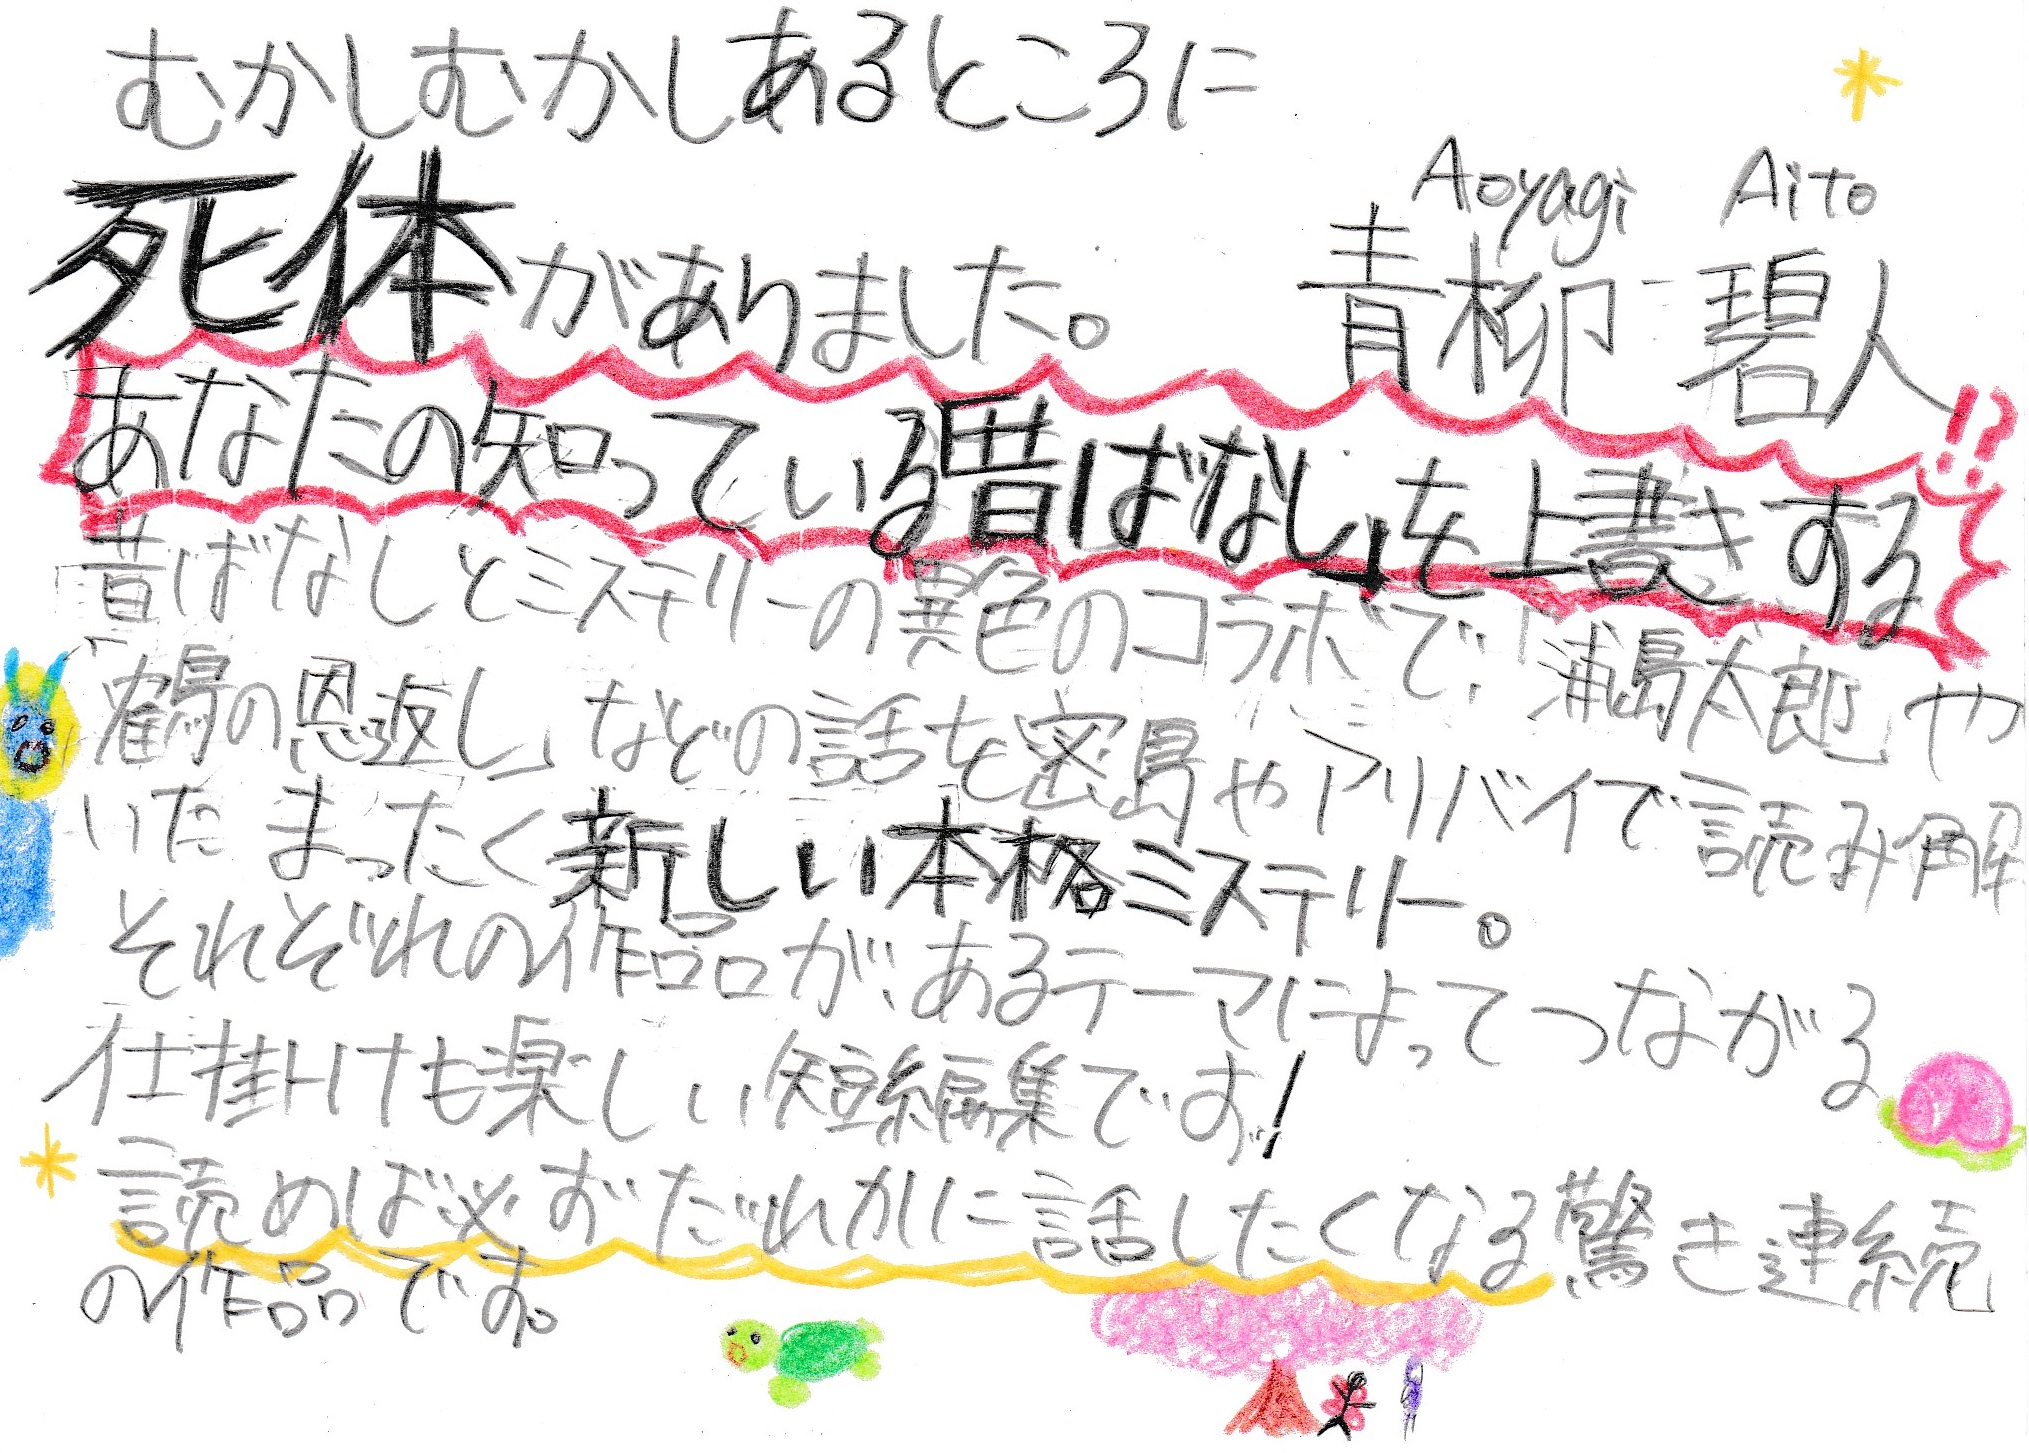 むかしむかしあるところに
死体がありました。
Aoyagi Aito
青柳 碧人
あなたの知っている「昔ばなし」を上書きする!?
昔ばなしとミステリーの異色のコラボで、「浦島太郎」や
「鶴の恩返し」などの話を密島やアリバイで読み解
いたまったく新しい本格ミステリー。
それぞれの作品が、あるテーマによってつながる
仕掛けも楽しい短編集です!
読めば必ずだれかに話したくなる驚き連続
の作品です。